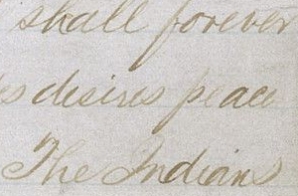 shall forever
es desires peace
The Indians